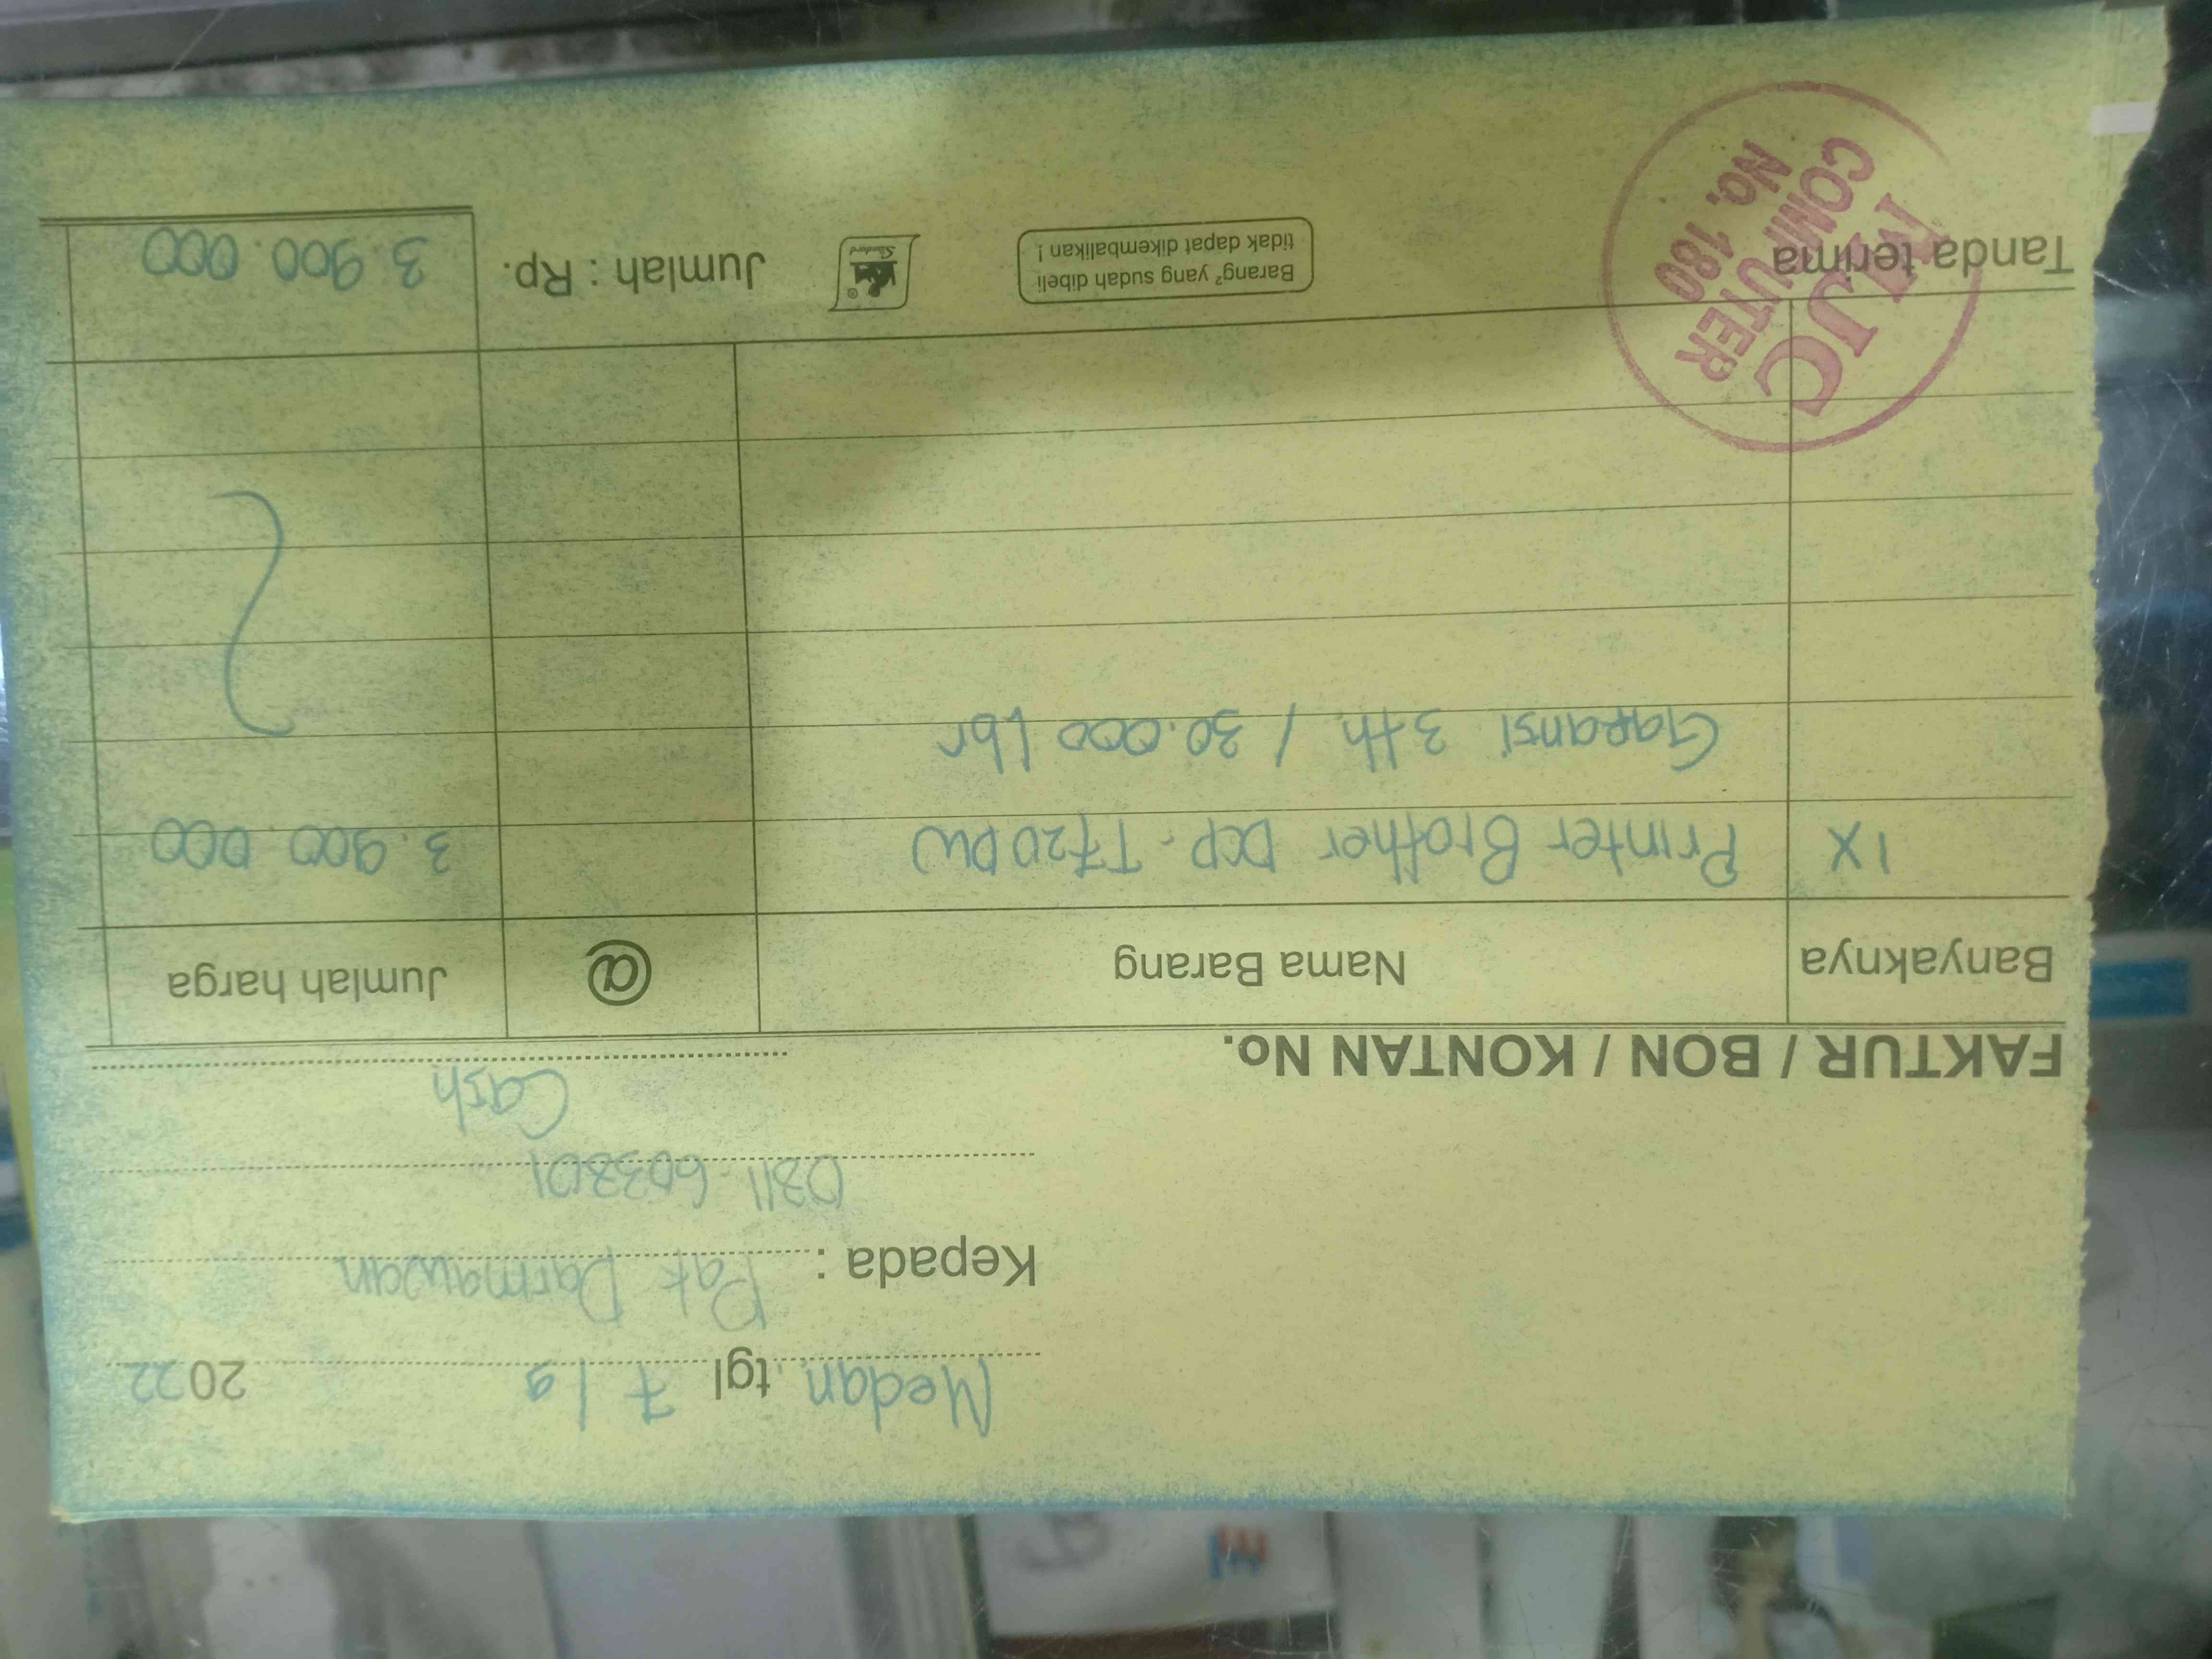 Medan, tgl 7/9 2022
Kepada : Pak Darmawan
0811-603801
Cash
FAKTUR / BON / KONTAN No.
Banyaknya Nama Barang @ Jumlah harga
1X Printer Brother DCP-T720DW 3.900.000
Garansi 3th / 30.000 Lbr
Tanda terima
Barang² yang sudah dibeli
tidak dapat dikembalikan !
Jumlah : Rp. 3.900.000
MJC
COMPUTER
No. 180